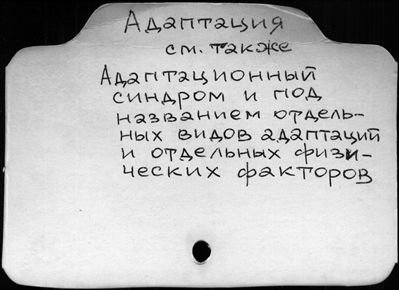 Адаптация
см. также
Адаптационный
синдром и под
названием отдель-
ных видов адаптаций
и отдельных физи-
ческих факторов